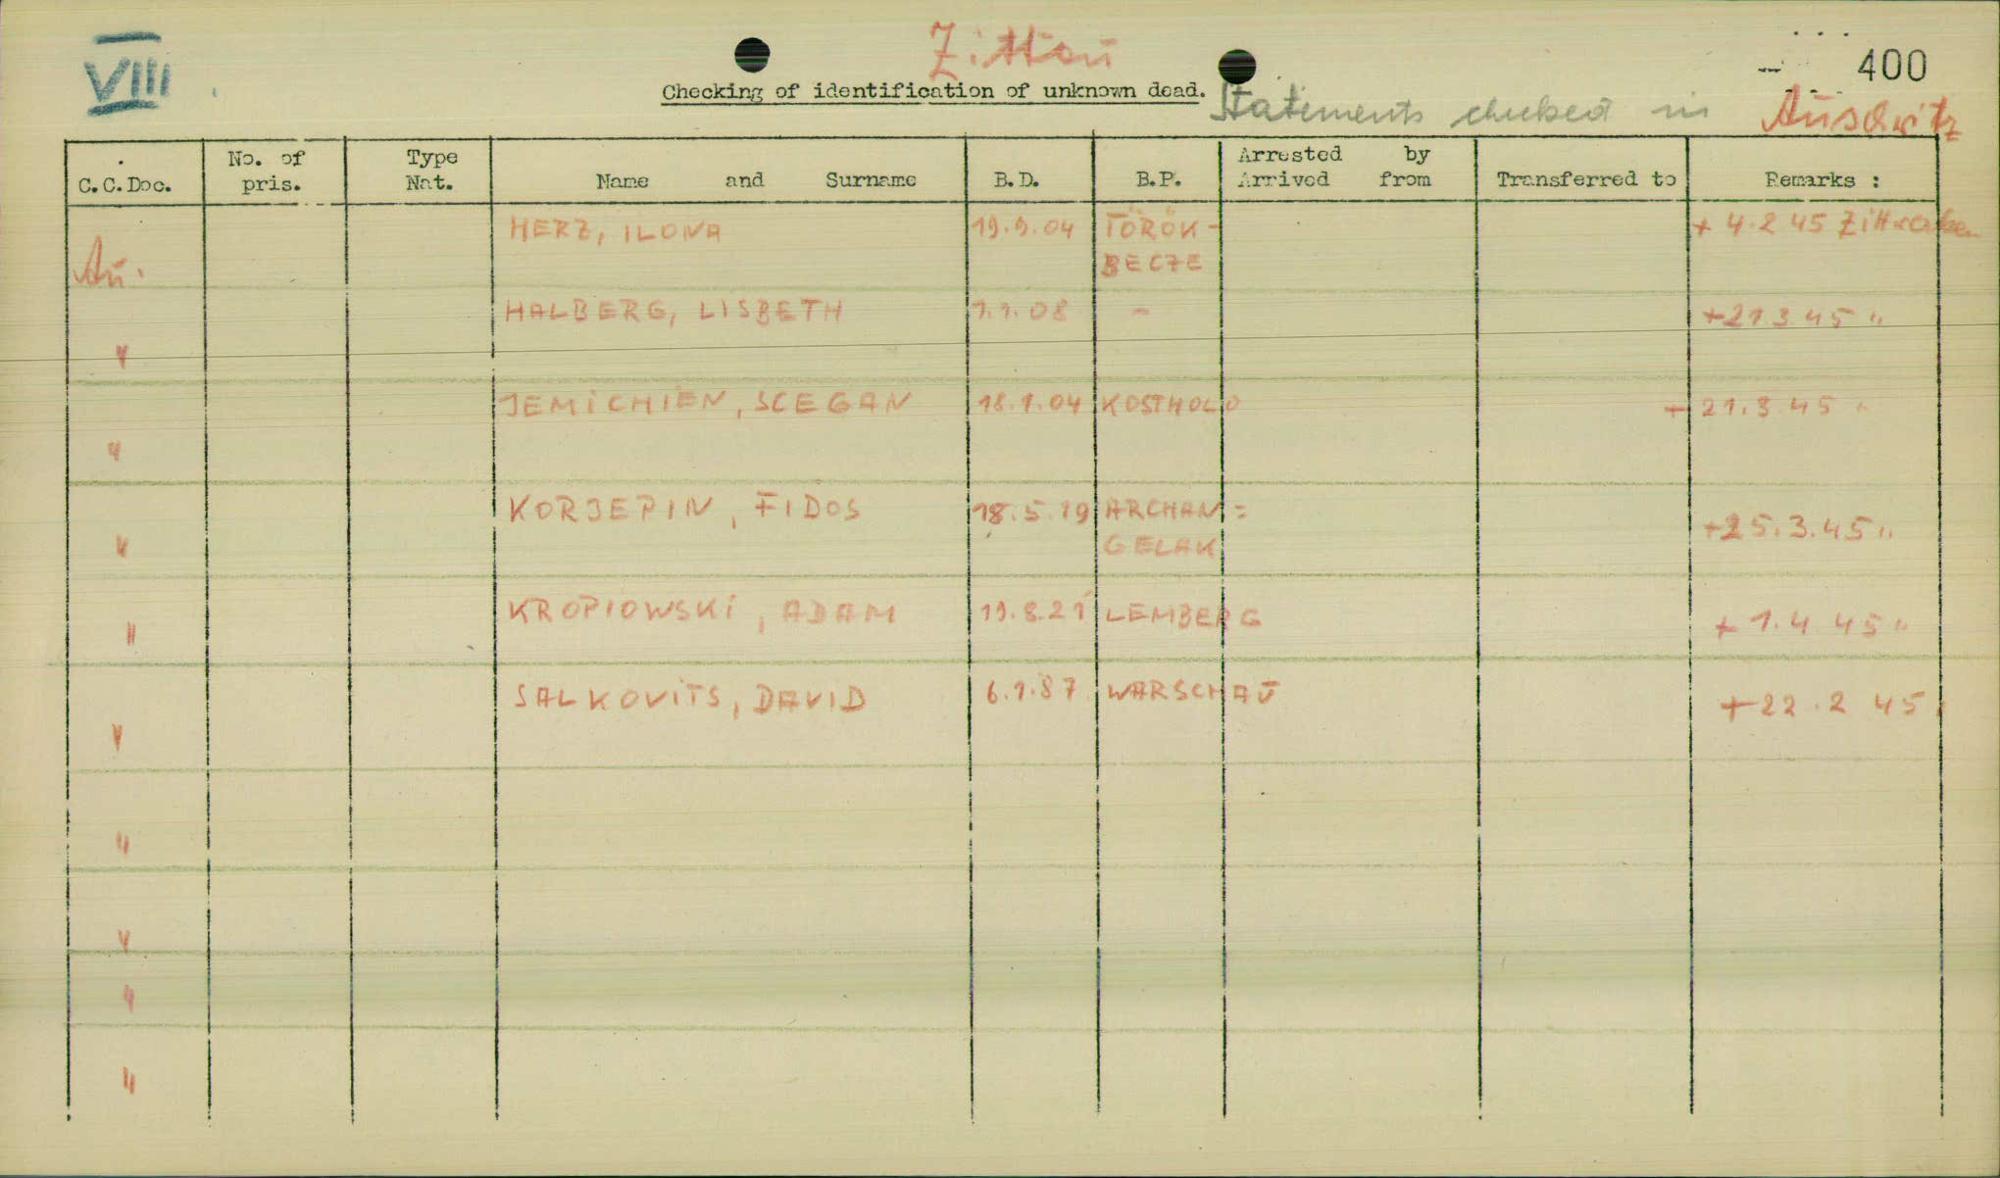 VIII
Zittau
400
Checking of identification of unknown dead.
Statements checked in Auschwitz
C.C.Doc. No. of pris. Type Nat. Name and Surname B.D. B.P. Arrested by Arrived from Transferred to Remarks :
Au. HERZ, ILONA 19.9.04 TÖRÖK- + 4.2 45 Zittau
BECZE
" HALBERG, LISBETH 1.1.08 - +21.3 45 "
" JEMICHIEN, SCEGAN 18.1.04 KOSTHOLD + 21.3.45 "
" KORJEPIN, FIDOS 18.5.19 ARCHAN= +25.3.45 "
GELAK
" KROPIOWSKI, ADAM 19.8.21 LEMBERG + 1.4 45 "
" SALKOVITS, DAVID 6.1.87 WARSCHAU +22.2 45
"
"
"
"